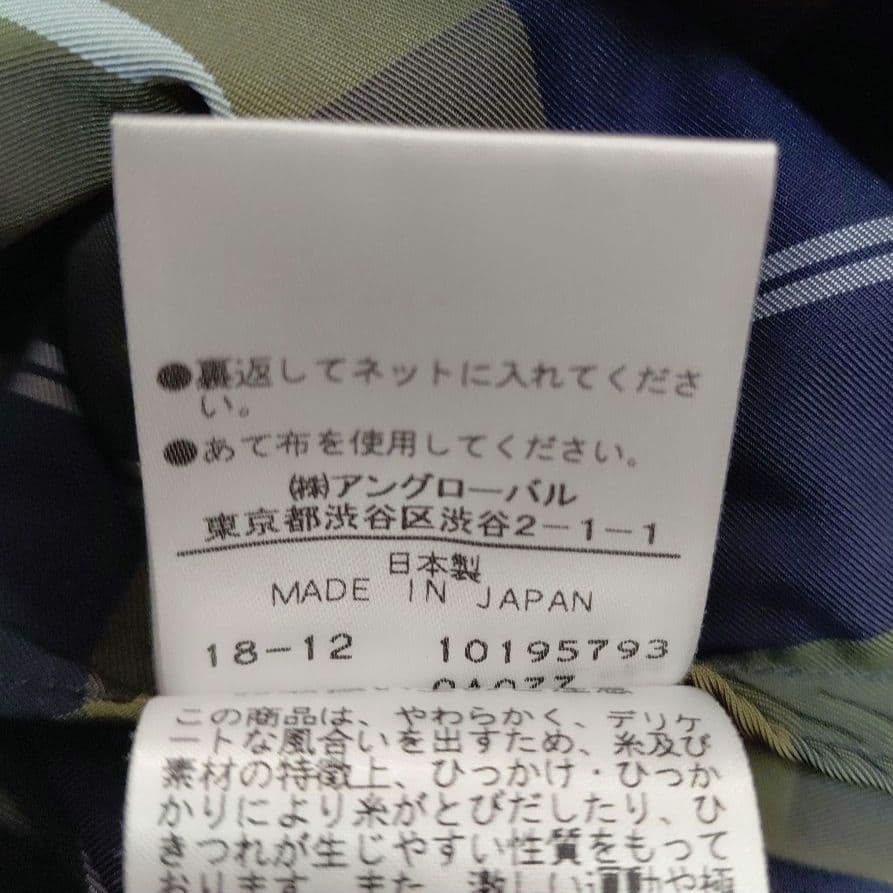 ●裏返してネットに入れてくださ
い。
●あて布を使用してください。
㈱アングローバル
東京都渋谷区渋谷2-1-1
日本製
MADE IN JAPAN
18-12 10195793
この商品は、やわらかく、デリケ
ートな風合いを出すため、糸及び
素材の特徴上、ひっかけ・ひっか
かりにより糸がとびだしたり、ひ
きつれが生じやすい性質をもって
おります。また、激しい運動や極